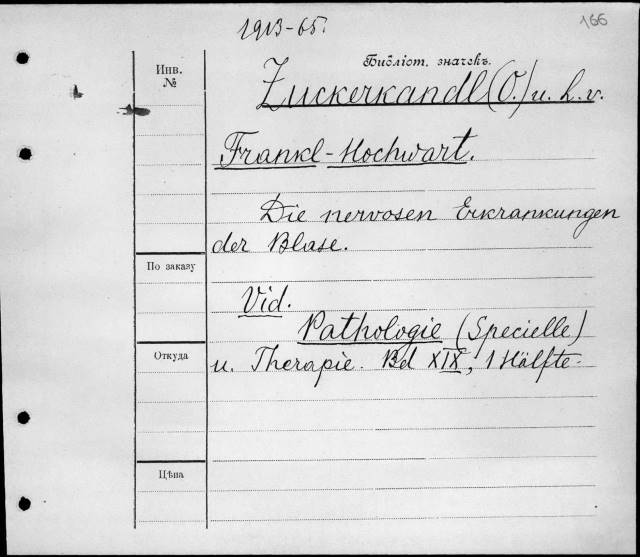 166
1913-65.
Инв.
№
Библіот. значекъ.
Zuckerkandl (O.) u. L. v.
Frankl-Hochwart.
Die nervosen Erkrankungen
der Blase.
По заказу
Vid.
Pathologie (Specielle)
Откуда
u. Therapie. Bd XIX, 1 Hälfte.
Цѣна